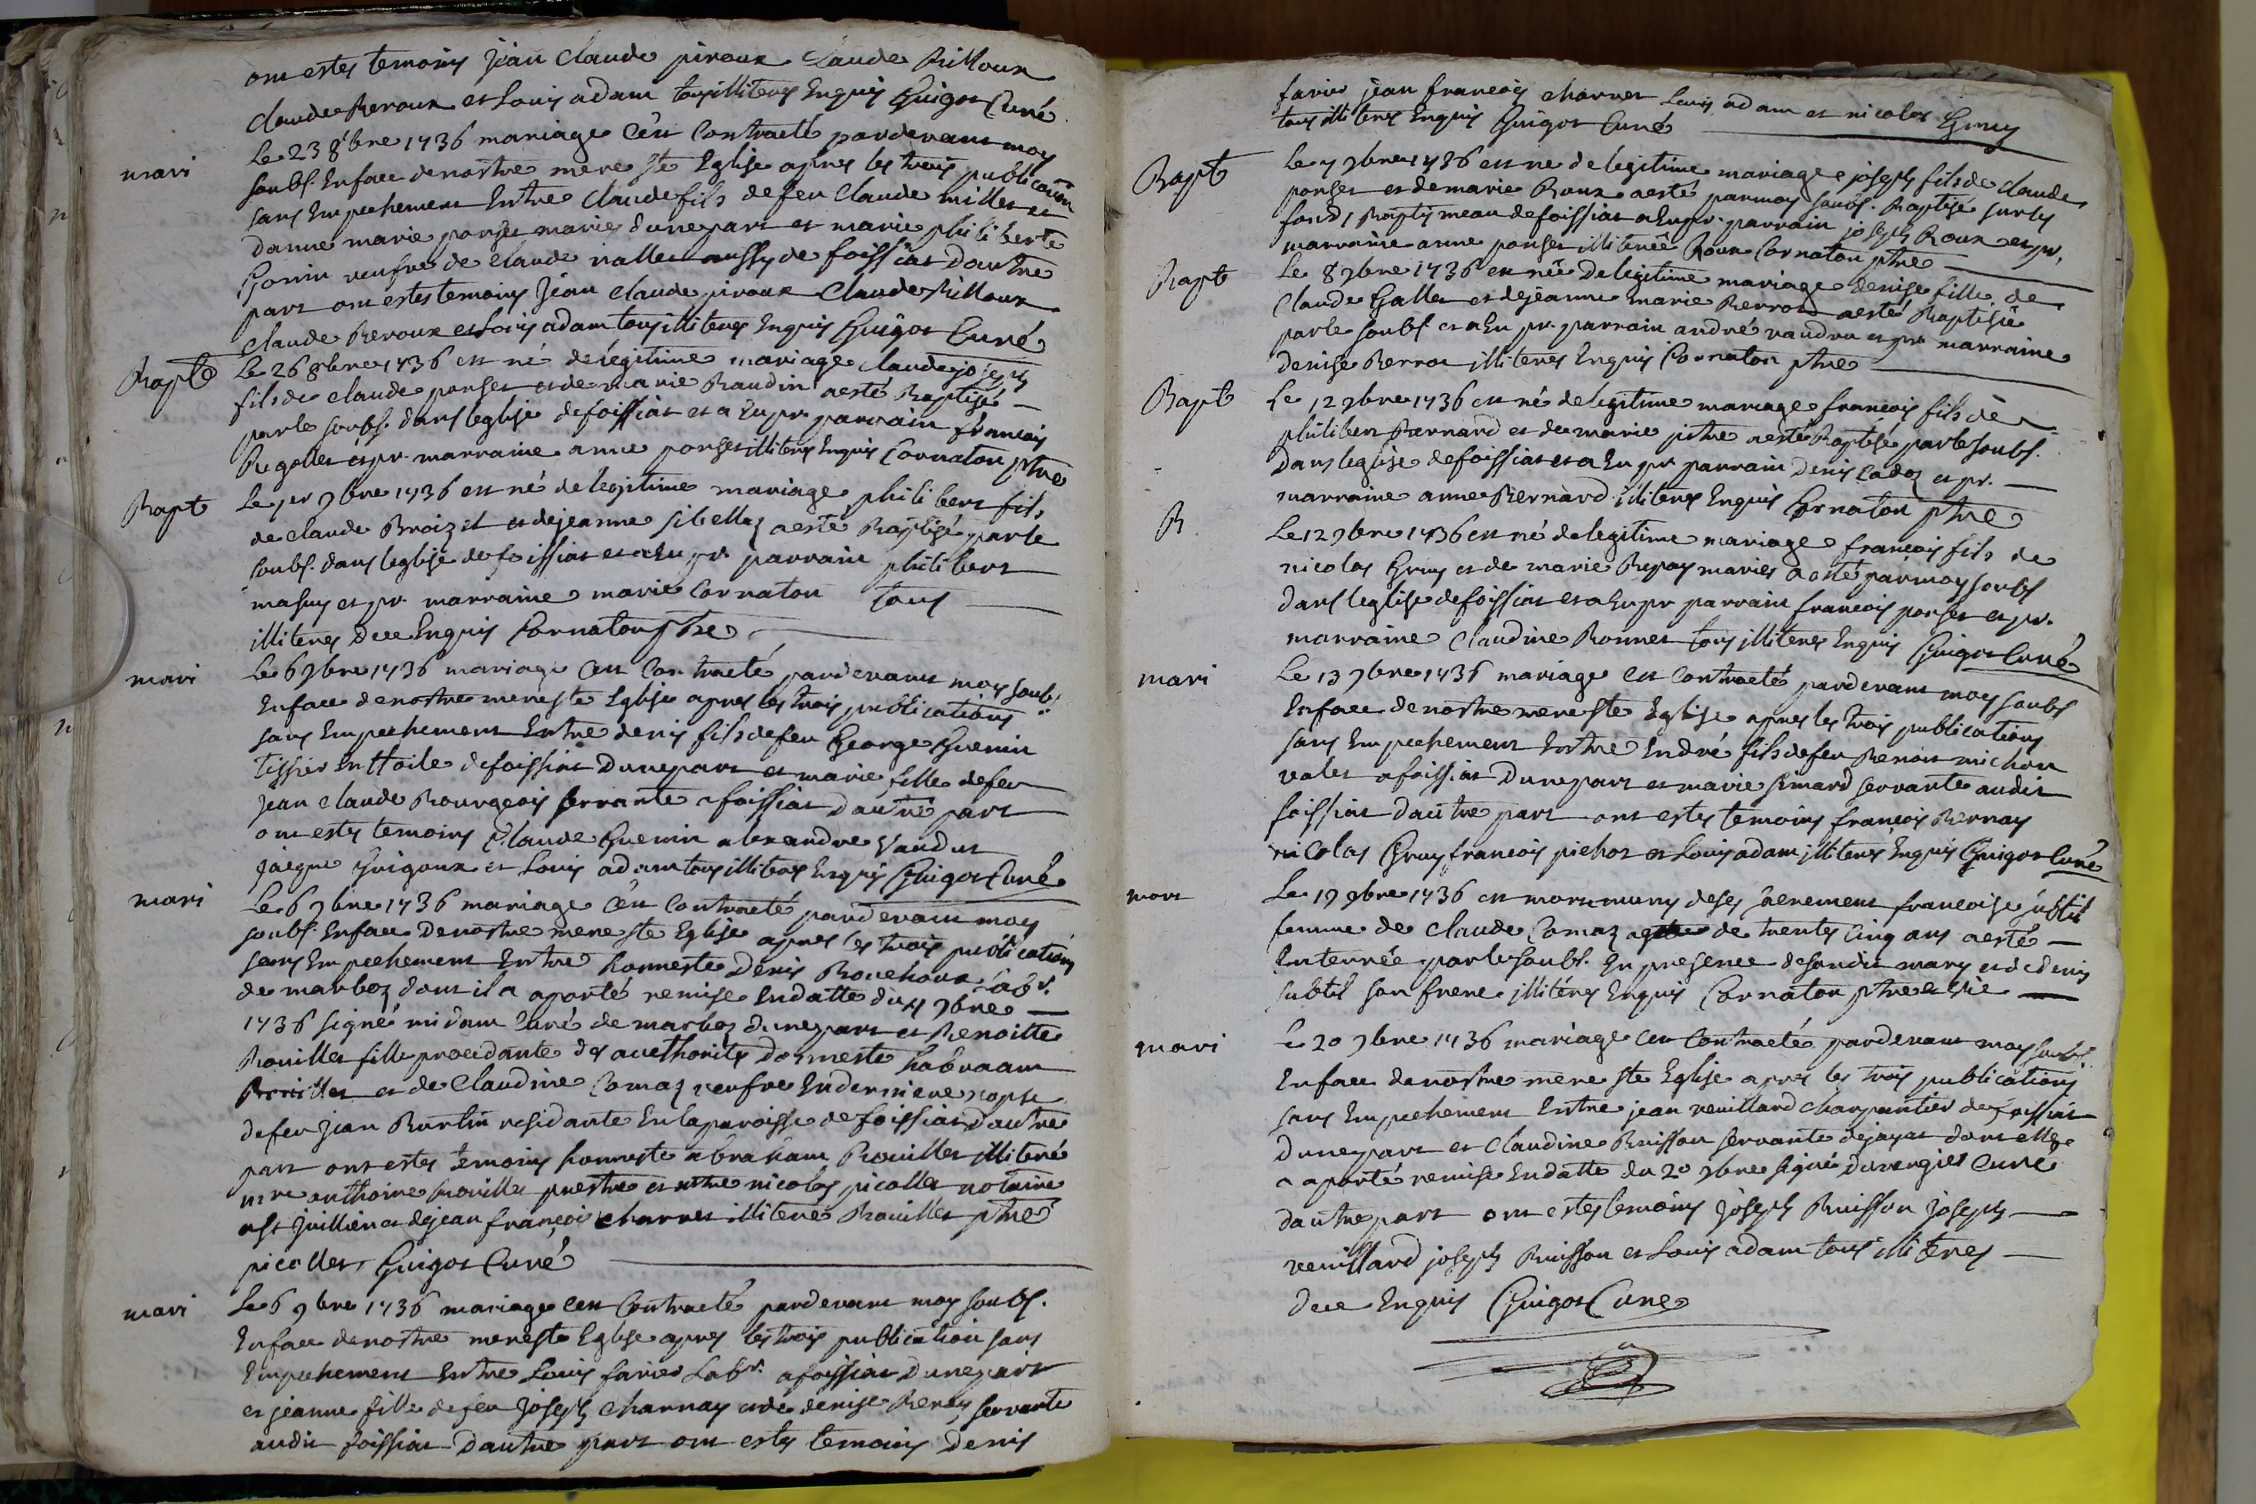 ont estes temoins jean claude piroux Claude Billoux
claude Reroux et Louis adam tous illiteres Enquis Guigot Curé
mari
Le 23 8bre 1736 mariage C'est Contracté pardevant moy
soubs. Enface de nostre mere ste Eglise apres les trois publication
sans Empechement Entre Claude fils de feu Claude millet et
danne marie ponset mariés dune part et marie philiberte
Gonin veufve de claude vallet aussy de foissiat dautre
part ont estes temoins Jean claude piroux Claude Billoux
claude Reroux et Louis adam tous illiteres Enquis Guigot Curé
Bapt
Le 26 8bre 1736 est né de legitime mariage claude joseph
fils de claude ponset et de marie Baudin aesté Baptisé
par le soubs. dans leglise de foissiat et a Eu pr. parrain francois
Rigollet et pr. marraine anne ponset illiteres Enquis Cornaton ptre
Bapt
Le 1er 9bre 1736 est né de legitime mariage philibert fils
de claude Broizat et de jeanne sibellaz aesté Baptisé par le
soubs. dans leglise de foissiat et a Eu pr. parrain philibert
masuy et pr. marraine marie Cornaton tous
illiteres Dece Enquis Cornaton ptre
mari
Le 6 9bre 1736 mariage Cest Contracté pardevant moy soubs.
Enface de nostre mere ste Eglise apres les trois publications
sans Empechement Entre denis fils de feu George Guenin
tissier En ttoile de foissiat Dune part et marie fille de feu
jean claude Bourgeois servante a foissiat Dautre part
ont estes temoins Claude Guenin alexandre Vaudut
jacque Guigoux et Louis adam tous illiteres Enquis Guigot Curé
mari
Le 6 9bre 1736 mariage C'est Contracté pardevant moy
soubs. Enface De nostre mere ste Eglise apres les trois publications
sans Empechement Entre honneste Denis Bouchoux labr.
de marboz dont il a aporté remise Endatte du 4 9bre
1736 signé midam Curé de marboz dune part et Benoitte
Bouillet fille procedante de lauethorité Dhonneste habraam
Bouillet et de Claudine Comaz veufve En derniere nopse
de feu jean Burtin residante En la paroisse de foissiat Dautre
part ont estes temoins honneste abraham Bouillet illiteré
mre anthoine Bouillet prestre et mtre nicolas picollet notaire
a st juillien et de jean françois charnet illiteré Bouillet ptre
picollet Guigot Curé
mari
Le 6 9bre 1736 mariage Cest Contracté pardevant moy soubs.
Enface de nostre mere ste Eglise apres les trois publication sans
Empechement Entre Louis farier Labr. a foissiat Dune part
et jeanne fille de feu joseph charnay et de denise Berey servante
audit foissiat Dautre part ont estes temoins Denis
farier jean francois charnet Louis adam et nicolas Gruy
tous illiteres Enquis Guigot Curé
Bapt
Le 7 9bre 1736 est né de legitime mariage joseph fils de claude
ponset et de marie Roux aesté par moy soubs. Baptisé sur les
fonds Baptismeau de foissiat a Eu pr. parrain joseph Roux et pr.
marraine anne ponset illiterée Roux Cornaton ptre
Bapt
Le 8 9bre 1736 est née De legitime mariage denise fille de
Claude Gallet et de jeanne marie Berrod aesté Baptisée
par le soubs. et a Eu pr. parrain andré vaudru et pr. marraine
denise Berrod illiteres Enquis Cornaton ptre
Bapt
Le 12 9bre 1736 est né de legitime mariage francois fils de
philibert Bernard et de marie pitre aesté Baptisé par le soubs.
Dans leglise de foissiat et a Eu pr. parrain Denis Cadoz et pr.
marraine anne Bernard illiteres Enquis Cornaton ptre
B
Le 12 9bre 1736 est né de legitime mariage françois fils de
nicolas Gruy et de marie Repay mariés aesté par moy soubs
dans leglise de foissiat et a Eu pr parrain francois ponset et pr.
marraine Claudine Bonnet tous illiteres Enquis Guigot Curé
mari
Le 13 9bre 1736 mariage Cest Contracté pardevant moy soubs
Enface de nostre mere ste Eglise apres les trois publications
sans Empechement Entre André fils de feu Benoit michon
valet a foissiat Dune part et marie simard servante audit
foissiat dautre part ont estes temoins françois Bernay
nicolas Gruy francois pichot et Louis adam illiteres Enquis Guigot Curé
mort
Le 19 9bre 1736 est mort muny de ses sacrement francoise subtil
femme de claude Comaz de trente Cinq ans aesté
Enterrée par le soubs. En presence de sondit mary et de denis
subtil son frere illiteres Enquis Cornaton ptre et vic
mari
Le 20 9bre 1736 mariage Cest Contracté pardevant moy soubs.
Enface de nostre mere ste Eglise apres les trois publications
sans Empechement Entre jean veuillard charpentier de foissiat
Dune part et claudine Buisson servante de jayat dont elle
a aporté remise Endatte du 20 9bre signé Duvergier Curé
dautre part ont estes temoins joseph Buisson joseph
veuillard joseph Buisson et Louis adam tous illiteres
dece Enquis Guigot Curé